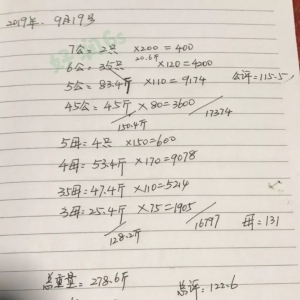 2019年. 9月19号
7公 = 2只 ×200 = 400
20.6斤
6公 = 35只 ×120 = 4200
5公 = 83.4斤 ×110 = 9174 公评 = 115.5
45公 = 45斤 ×80 = 3600
150.4斤 17374
5母 = 4只 ×150 = 600
4母 = 53.4斤 ×170 = 9078
35母 = 47.4斤 ×110 = 5214
3母 = 25.4斤 ×75 = 1905
128.2斤 16797 母 = 131
总重量 = 278.6斤 总评 = 122.6